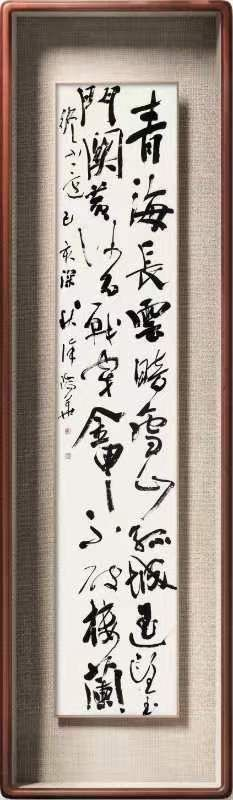 青海長雲暗雪山孤城遥望玉
門關黄沙百戰穿金甲不破楼蘭
終不還 己亥深秋